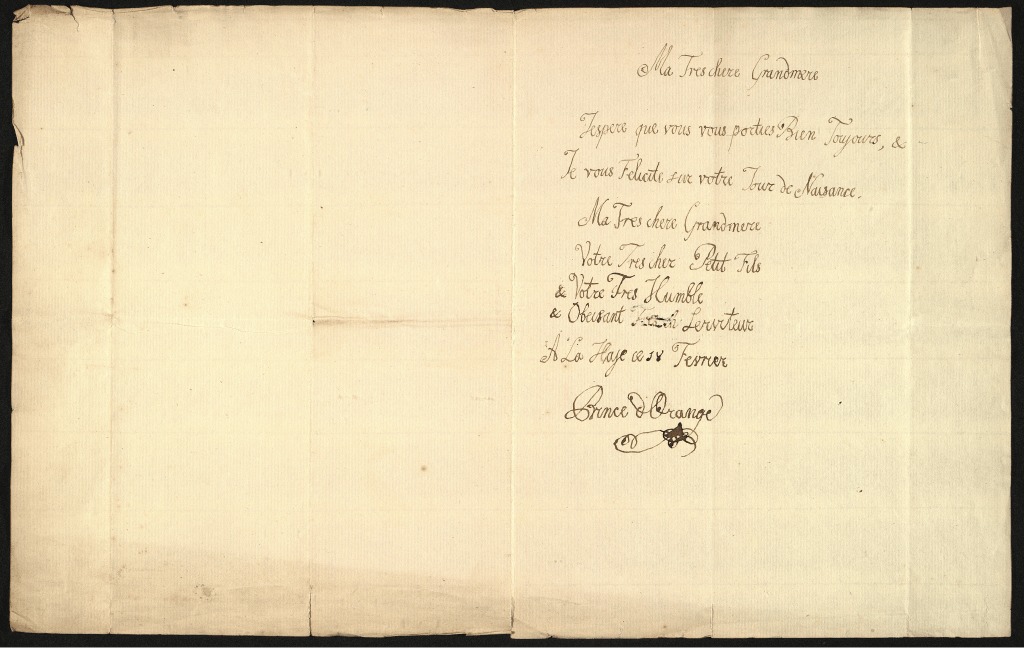 Ma Tres chere Grandmere
Jespere que vous vous porties Bien Toujours, &
Je vous Félicite sur votre Jour de Naisance.
Ma Tres chere Grandmere
Votre Tres cher Petit Fils
& Votre Tres Humble
& Obeisant Serviteur
A La Haje ce Fevrier
Prince d'Orange